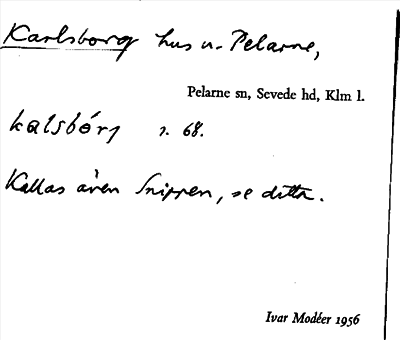 Karlsborg hus u. Pelarne,
Pelarne sn, Sevede hd, Klm l.
kalsbórj s. 68.
Kallas även Snippen, se ditto.
Ivar Modéer 1956